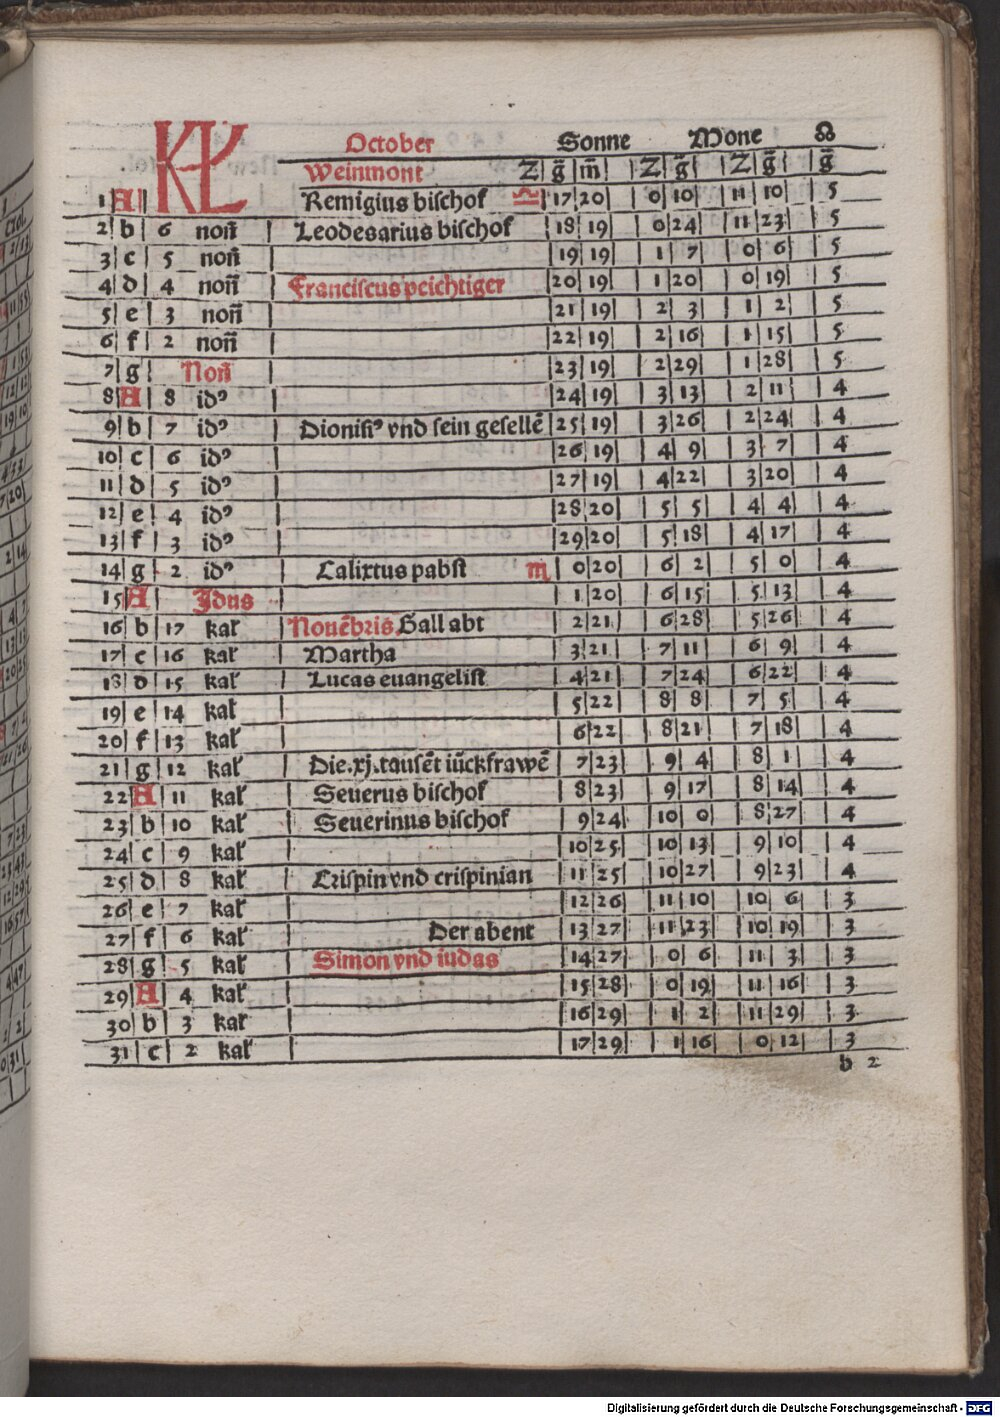 KL October Sonne Mone ☊
Weinmont Z g̅ m̅ Z g̅ Z g̅ g̅
1 A Remigius bischof ♎ 17 20 0 10 11 10 5
2 b 6 non̅ Leodesarius bischof 18 19 0 24 11 23 5
3 c 5 non̅ 19 19 1 7 0 6 5
4 d 4 non̅ Franciscus peichtiger 20 19 1 20 0 19 5
5 e 3 non̅ 21 19 2 3 1 2 5
6 f 2 non̅ 22 19 2 16 1 15 5
7 g Non̅ 23 19 2 29 1 28 5
8 A 8 idꝰ 24 19 3 13 2 11 4
9 b 7 idꝰ Dionisiꝰ vnd sein gesellē 25 19 3 26 2 24 4
10 c 6 idꝰ 26 19 4 9 3 7 4
11 d 5 idꝰ 27 19 4 22 3 20 4
12 e 4 idꝰ 28 20 5 5 4 4 4
13 f 3 idꝰ 29 20 5 18 4 17 4
14 g 2 idꝰ Calixtus pabst ♏ 0 20 6 2 5 0 4
15 A Idus 1 20 6 15 5 13 4
16 b 17 kal' Nouēbris. Gall abt 2 21 6 28 5 26 4
17 c 16 kal' Martha 3 21 7 11 6 9 4
18 d 15 kal' Lucas euangelist 4 21 7 24 6 22 4
19 e 14 kal' 5 22 8 8 7 5 4
20 f 13 kal' 6 22 8 21 7 18 4
21 g 12 kal' Die .xj. tausēt iūckfrawē 7 23 9 4 8 1 4
22 A 11 kal' Seuerus bischof 8 23 9 17 8 14 4
23 b 10 kal' Seuerinus bischof 9 24 10 0 8 27 4
24 c 9 kal' 10 25 10 13 9 10 4
25 d 8 kal' Crispin vnd crispinian 11 25 10 27 9 23 4
26 e 7 kal' 12 26 11 10 10 6 3
27 f 6 kal' Der abent 13 27 11 23 10 19 3
28 g 5 kal' Simon vnd iudas 14 27 0 6 11 3 3
29 A 4 kal' 15 28 0 19 11 16 3
30 b 3 kal' 16 29 1 2 11 29 3
31 c 2 kal' 17 29 1 16 0 12 3
b 2
Digitalisierung gefördert durch die Deutsche Forschungsgemeinschaft - DFG